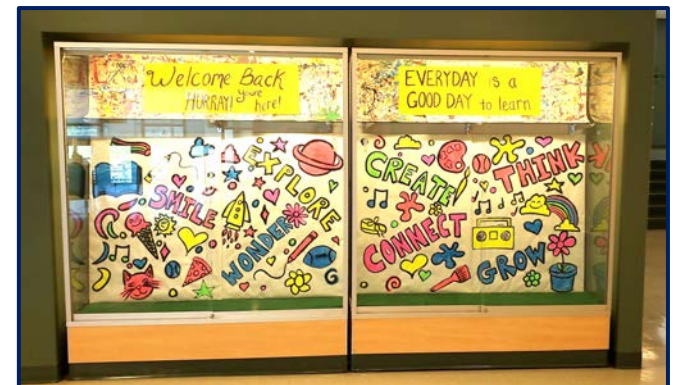 Welcome Back
HURRAY! you're here!
EVERYDAY is a
GOOD DAY to learn
EXPLORE
SMILE
WONDER
CREATE
THINK
CONNECT
GROW